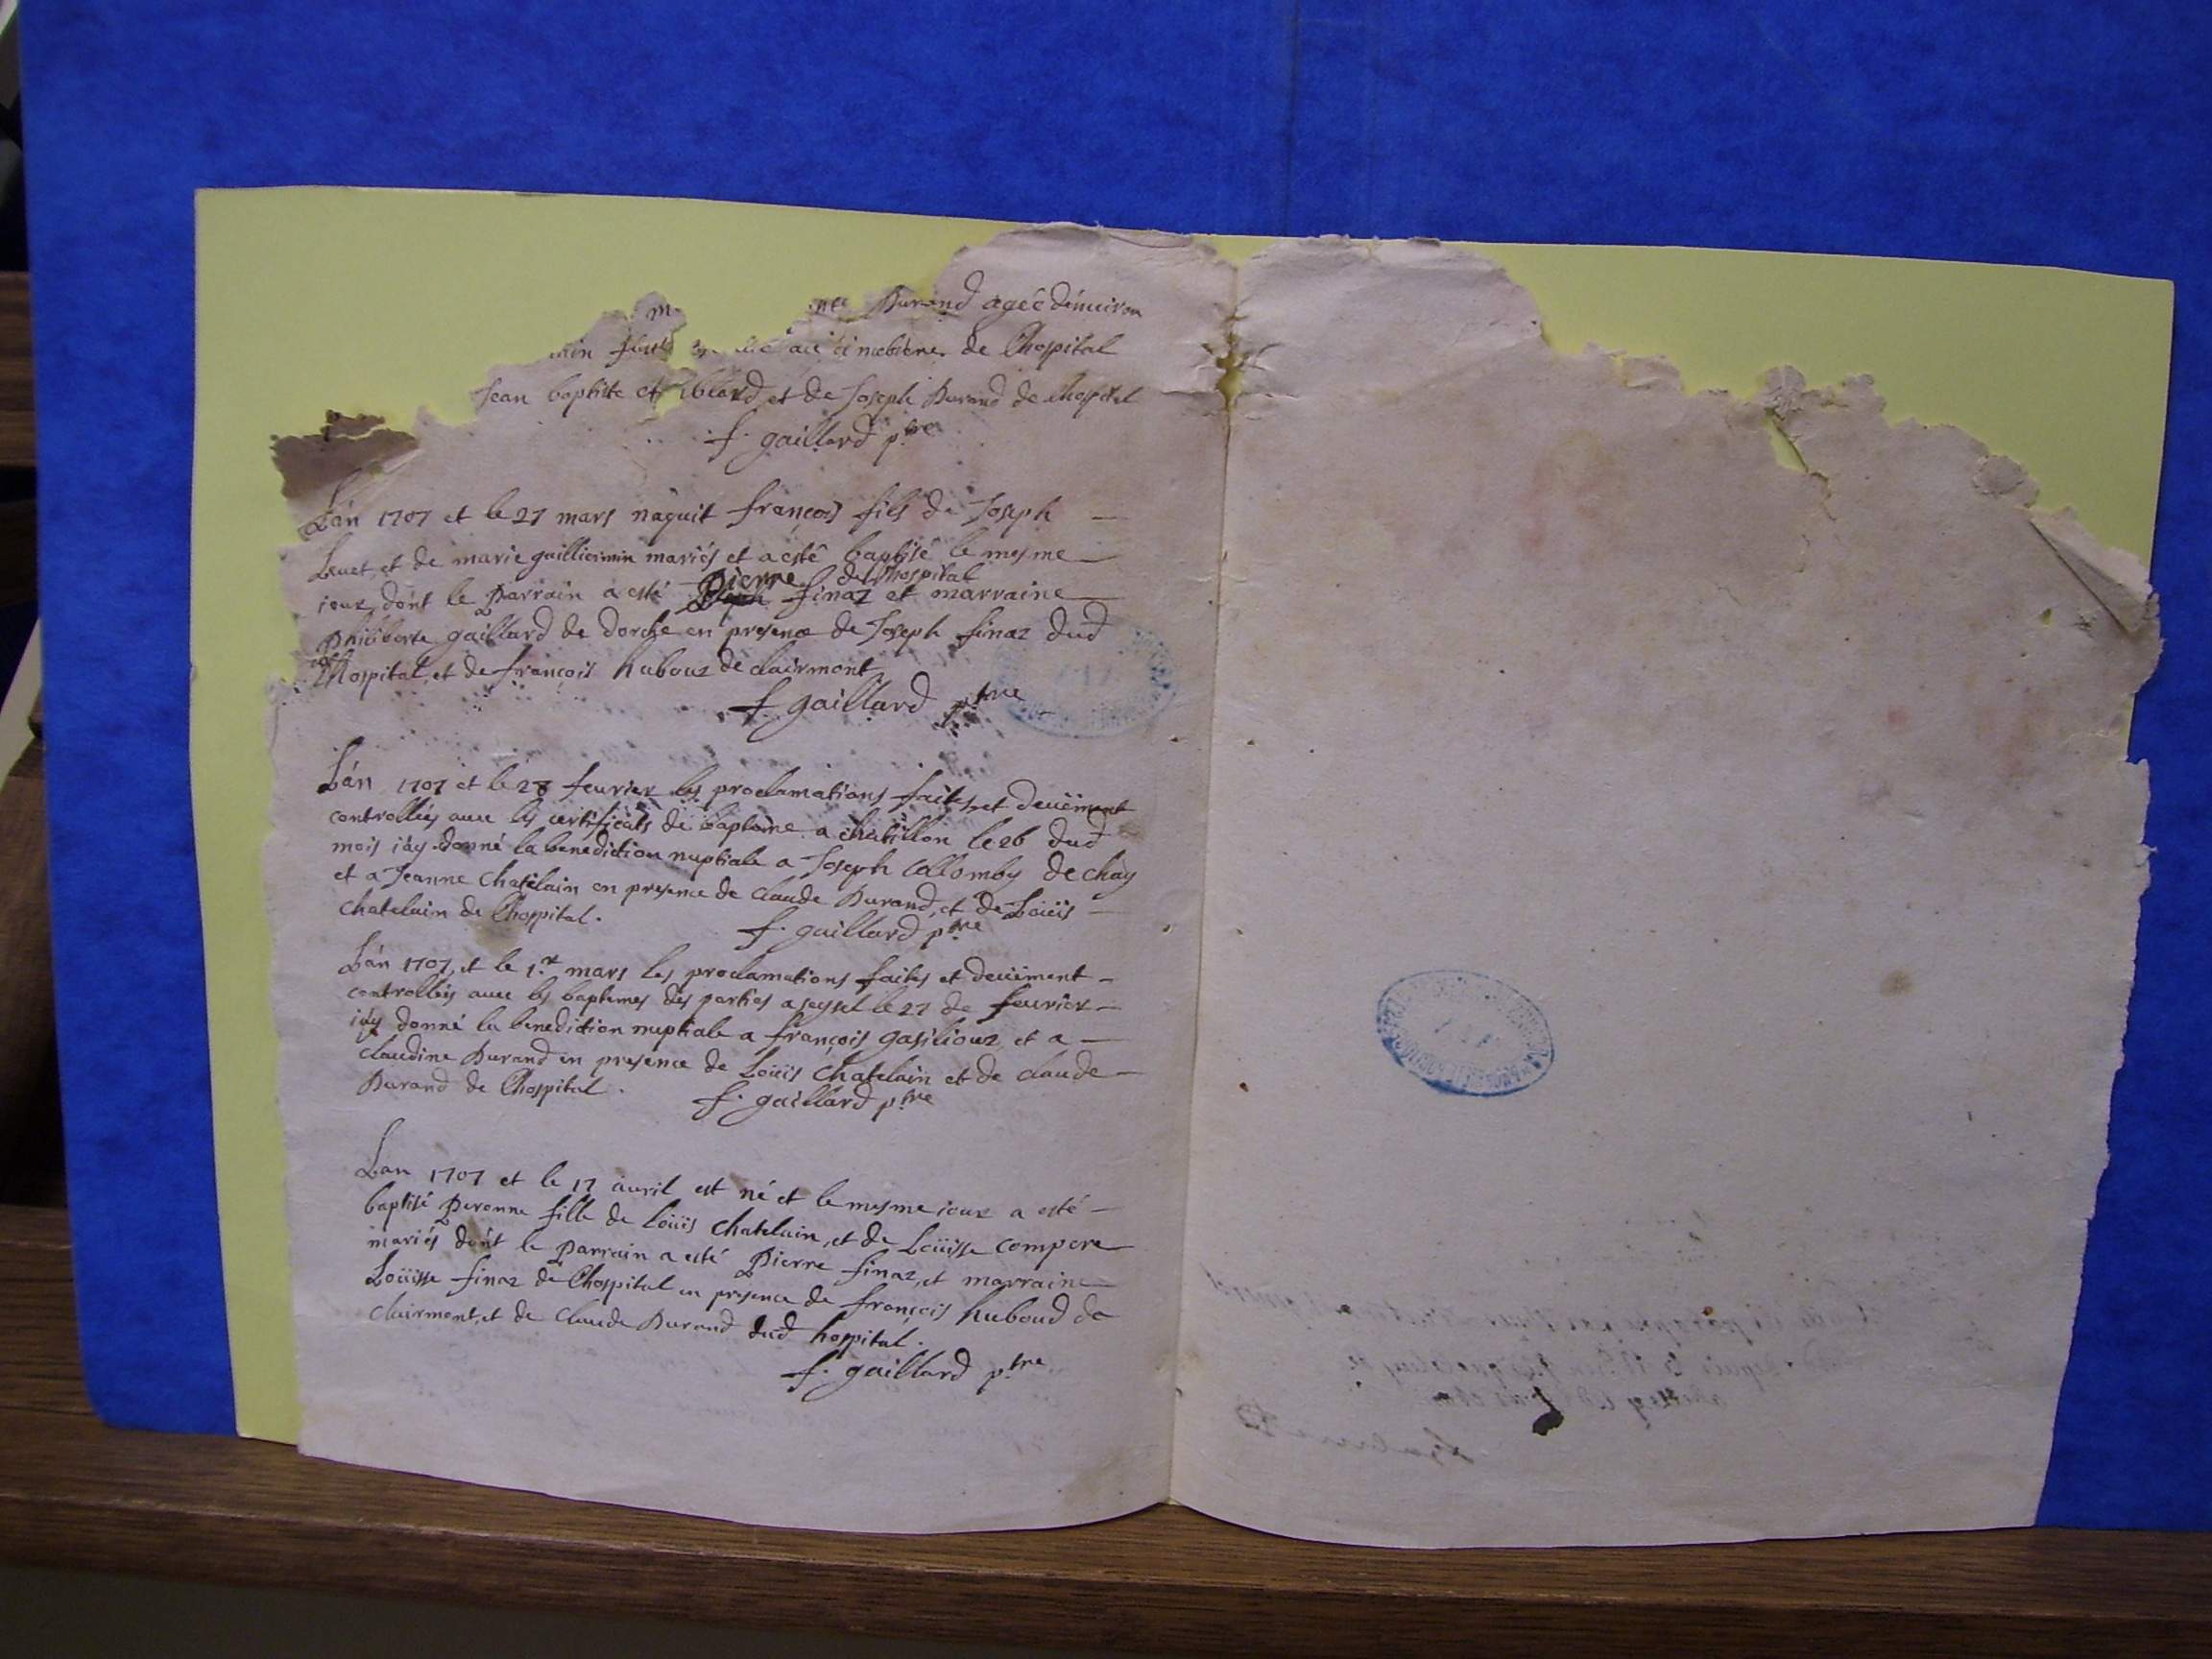 Durand agée denuiron
de Lhospital
Jean baptiste et de Joseph Durand de lhospital
f. gaillard p.tre
Lan 1707 et le 27 mars naquit françois fils de Joseph
et de marie guilliermin mariés et a esté baptisé le mesme
jour, dont le parrain a esté Pierre finaz de Lhospital et marraine
philiberte gaillard de dorche en presence de Joseph finaz dud
Lhospital, et de françois hubouz de clairmont
f. gaillard ptre
Lan 1707 et le 28 feurier les proclamations faites, et deuëment
controllées auec les certificats de baptême a chatillon le 26 dud
mois iay donné la benediction nuptiale a Joseph Collomby de chay
et a Jeanne Chatelain en presence de claude Durand, et de Loüis
chatelain de Lhospital.
f. gaillard ptre
Lan 1707, et le 1.r mars les proclamations faites et deuëment
controllées auec les baptemes des parties a seyssel le 27 de feurier
iay donné la benediction nuptiale a françois gasiliouz, et a
claudine Durand en presence de Loüis Chatelain et de claude
Durand de Lhospital.
f. gaillard ptre
Lan 1707 et le 17 auril est né et le mesme iour a esté
baptisé peronne fille de loüis chatelain, et de Loüisse compere
mariés dont le parrain a esté Pierre finaz, et marraine
Loüisse finaz de Lhospital en presence de françois huboud de
clairmont, et de claude Durand dud hospital.
f. gaillard ptre